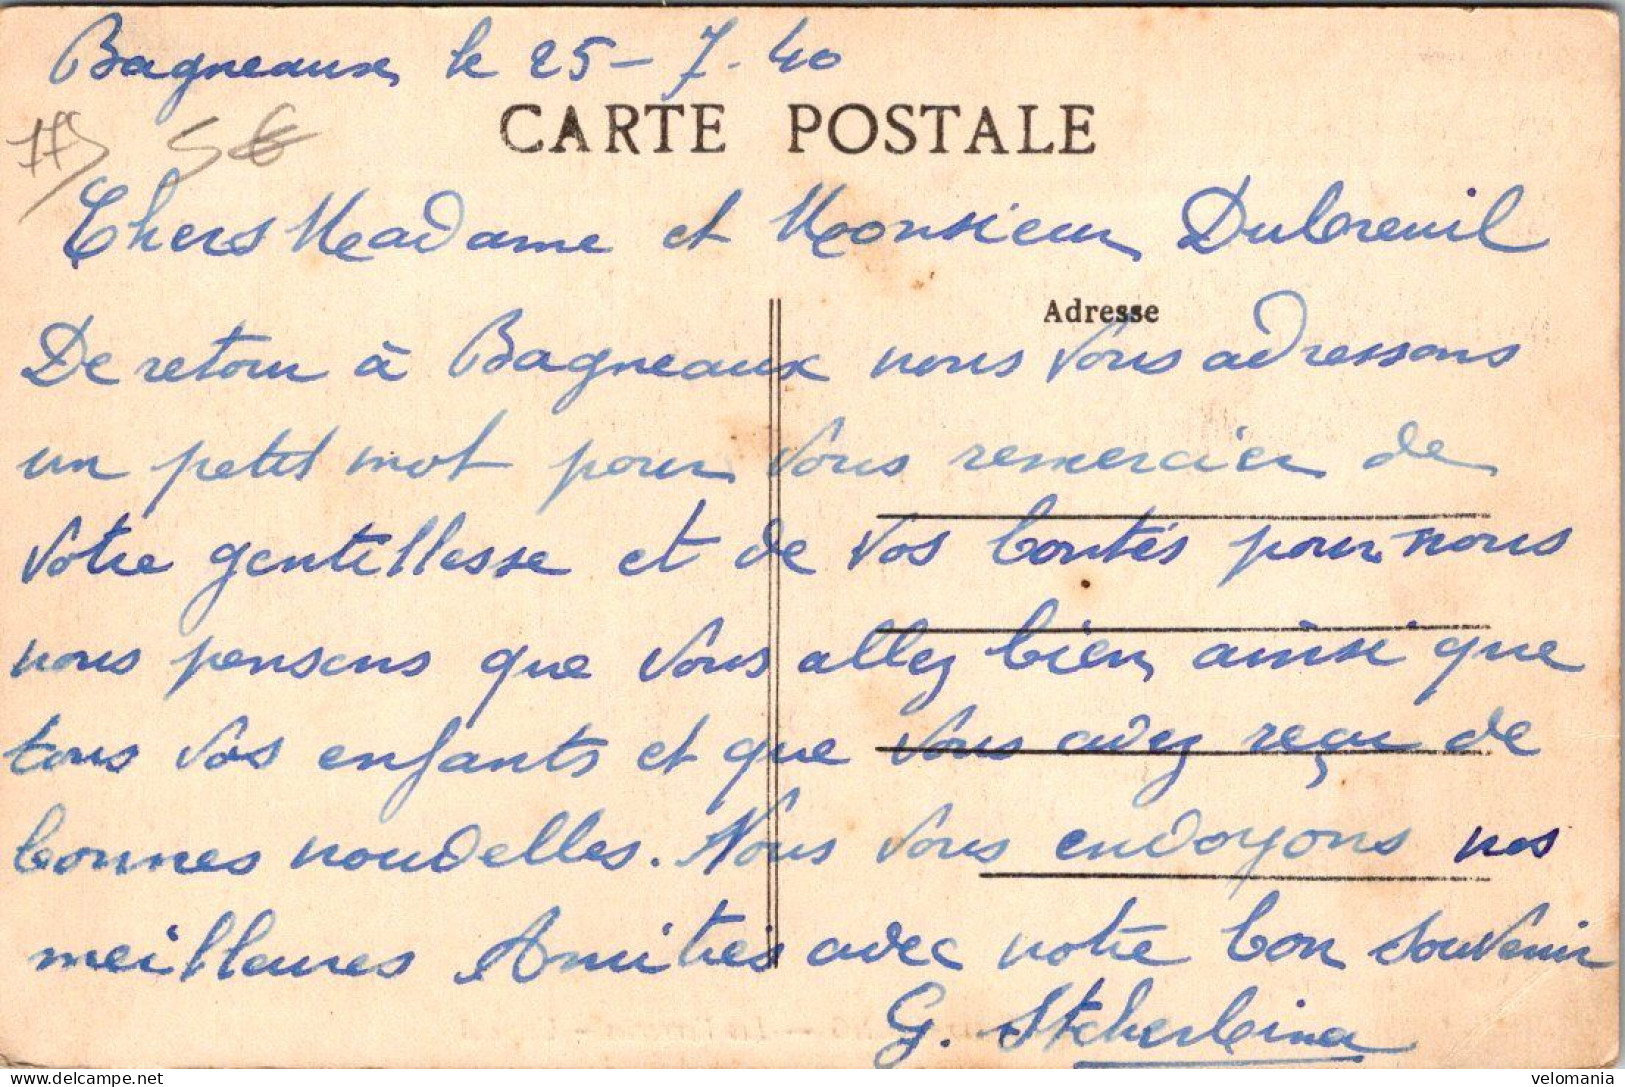 Bagneaux le 25-7-40
CARTE POSTALE
5€
Chers Madame et Monsieur Dubreuil
Adresse
De retour à Bagneaux nous vous adressons
un petit mot pour vous remercier de
votre gentillesse et de vos bontés pour nous
nous pensons que vous allez bien ainsi que
tous vos enfants et que vous avez reçu de
bonnes nouvelles. Nous vous envoyons nos
meilleures Amitiés avec notre bon souvenir
G. Stcherbina
velomania